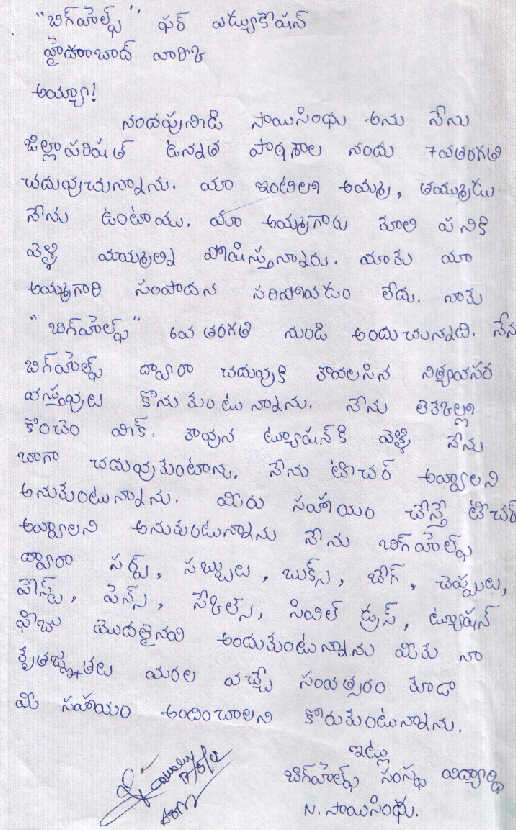 "బిగ్‌హెల్ప్" ఫర్ ఎడ్యుకేషన్
హైదరాబాద్ వారికి
అయ్యా!
నందవునూడి సాయిసింధు అను నేను
జిల్లాపరిషత్ ఉన్నత పాఠశాల నందు 7వతరగతి
చదువుచున్నాను. మా ఇంటిలో అమ్మ, తమ్ముడు
నేను ఉంటాము. మా అమ్మగారు కూలి పనికి
వెళ్ళి మమ్మల్ని పోషిస్తున్నారు. మాకు మా
అమ్మగారి సంపాదన సరిపోవడం లేదు. నాకు
"బిగ్‌హెల్ప్" 6వ తరగతి నుండి అందుచున్నది. నేను
బిగ్‌హెల్ప్ ద్వారా చదువుకి కావలసిన నిత్యావసర
వస్తువులు కొనుకుంటున్నాను. నేను లెక్కలలో
కొంచెం వీక్. కావున ట్యూషన్‌కి వెళ్ళి నేను
బాగా చదువుకుంటాను. నేను టీచర్ అవ్వాలని
అనుకుంటున్నాను. మీరు సహాయం చేస్తే టీచర్
అవ్వాలని అనుకుంటున్నాను నేను బిగ్‌హెల్ప్
ద్వారా సర్ఫ్, సబ్బులు, బుక్స్, బ్యాగ్, చెప్పులు,
పేస్ట్, పెన్స్, సివిల్ డ్రస్, ట్యూషన్
ఫీజు మొదలైనవి అందుకుంటున్నాను మీకు నా
కృతజ్ఞతలు మరల వచ్చే సంవత్సరం కూడా
మీ సహాయం అందించాలని కోరుకుంటున్నాను.
ఇట్లు
బిగ్‌హెల్ప్ సంస్థ విద్యార్థి
N. సాయిసింధు.